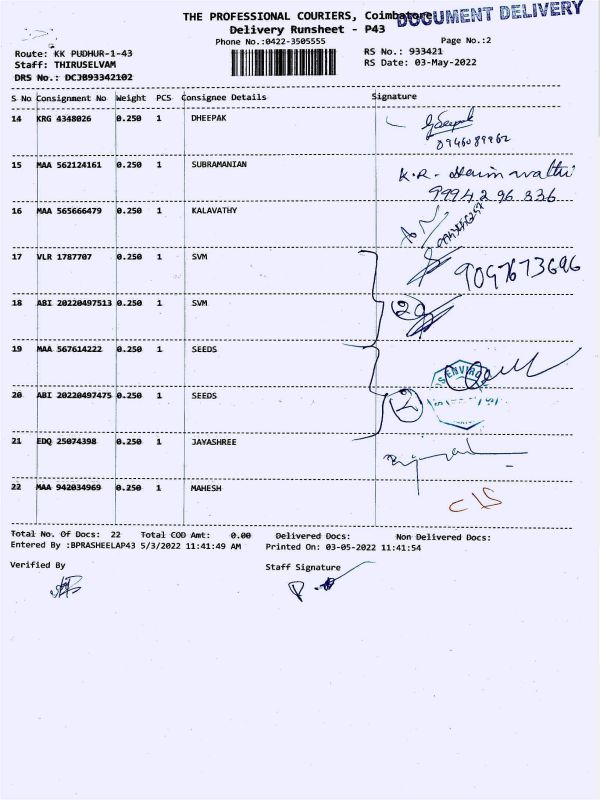 THE PROFESSIONAL COURIERS, Coimbatore
DOCUMENT DELIVERY
Delivery Runsheet - P43
Phone No.:0422-3505555
Page No.:2
Route: KK PUDHUR-1-43
RS No.: 933421
Staff: THIRUSELVAM
RS Date: 03-May-2022
DRS No.: DCJB93342102
S No Consignment No Weight PCS Consignee Details Signature
14 KRG 4348026 0.250 1 DHEEPAK
15 MAA 562124161 0.250 1 SUBRAMANIAN K.R.
99942 96 336
16 MAA 565666479 0.250 1 KALAVATHY
17 VLR 1787707 0.250 1 SVM 9047673696
18 ABI 20220497513 0.250 1 SVM
19 MAA 567614222 0.250 1 SEEDS
ENVIRO
20 ABI 20220497475 0.250 1 SEEDS
21 EDQ 25074398 0.250 1 JAYASHREE
22 MAA 942034969 0.250 1 MAHESH
Total No. Of Docs: 22 Total COD Amt: 0.00 Delivered Docs: Non Delivered Docs:
Entered By :BPRASHEELAP43 5/3/2022 11:41:49 AM Printed On: 03-05-2022 11:41:54
Verified By Staff Signature